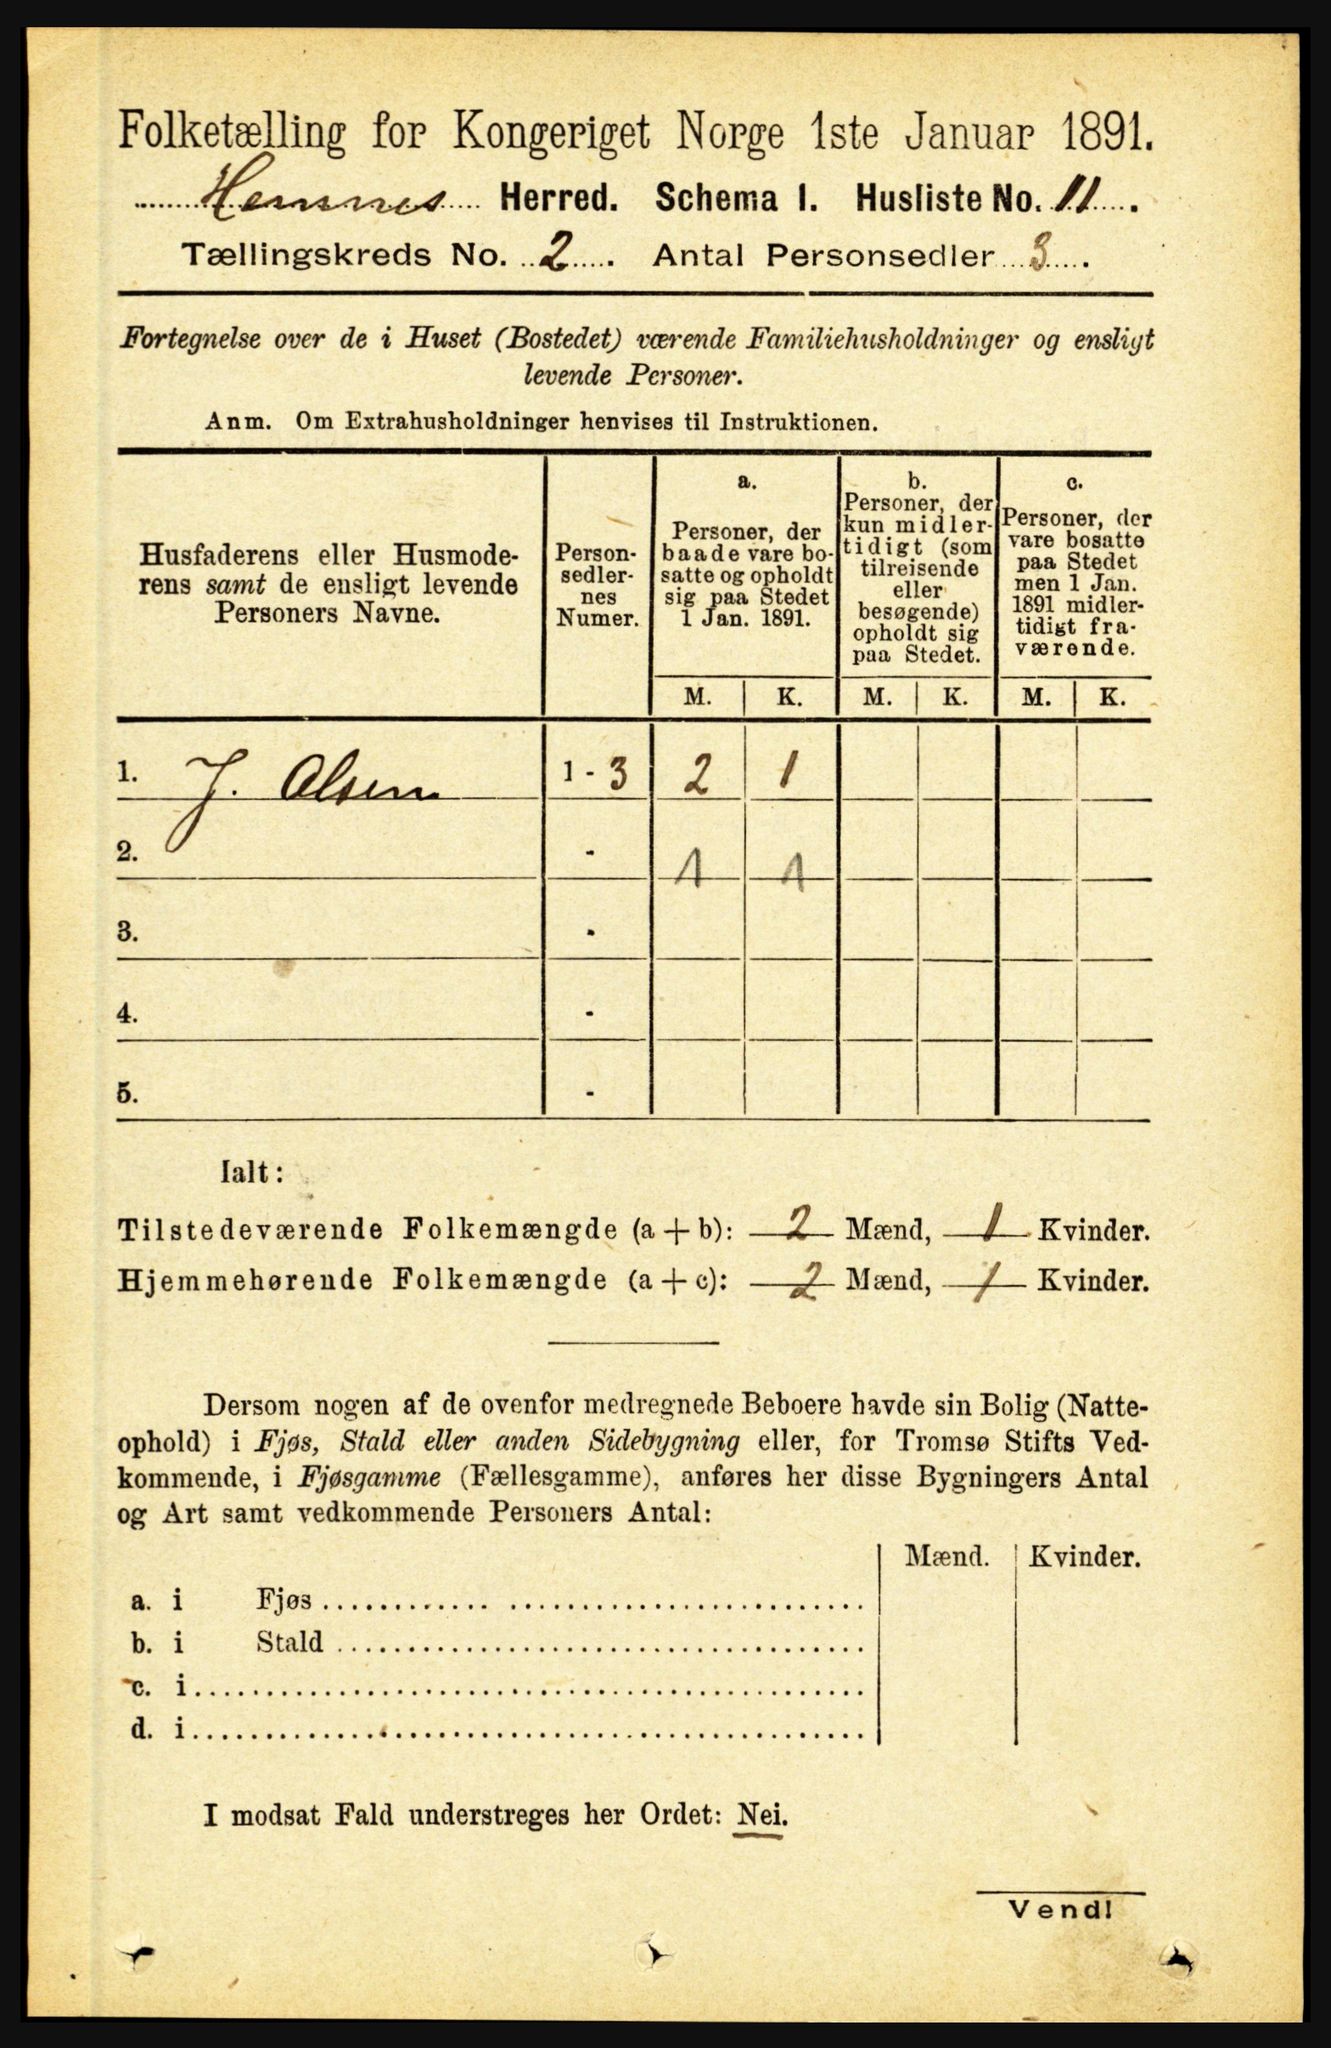 Folketælling for Kongeriget Norge 1ste Januar 1891.
Hemnes Herred. Schema I. Husliste No. 11.
Tællingskreds No. 2. Antal Personsedler 3.
Fortegnelse over de i Huset (Bostedet) værende Familiehusholdninger og ensligt
levende Personer.
Anm. Om Extrahusholdninger henvises til Instruktionen.
Husfaderens eller Husmode-
rens samt de ensligt levende
Personers Navne.
Person-
sedler-
nes
Numer.
a.
Personer, der
baade vare bo-
satte og opholdt
sig paa Stedet
1 Jan. 1891.
b.
Personer, der
kun midler-
tidigt (som
tilreisende
eller
besøgende)
opholdt sig
paa Stedet.
c.
Personer, der
vare bosatte
paa Stedet
men 1 Jan.
1891 midler-
tidigt fra-
værende.
M. K. M. K. M. K.
1. J. Olsen 1 - 3 2 1
2. - 1 1
3. -
4. -
5. -
Ialt:
Tilstedeværende Folkemængde (a + b): 2 Mænd, 1 Kvinder.
Hjemmehørende Folkemængde (a + c): 2 Mænd, 1 Kvinder.
Dersom nogen af de ovenfor medregnede Beboere havde sin Bolig (Natte-
ophold) i Fjøs, Stald eller anden Sidebygning eller, for Tromsø Stifts Ved-
kommende, i Fjøsgamme (Fællesgamme), anføres her disse Bygningers Antal
og Art samt vedkommende Personers Antal:
Mænd. Kvinder.
a. i Fjøs
b. i Stald
c. i
d. i
I modsat Fald understreges her Ordet: Nei.
Vend!